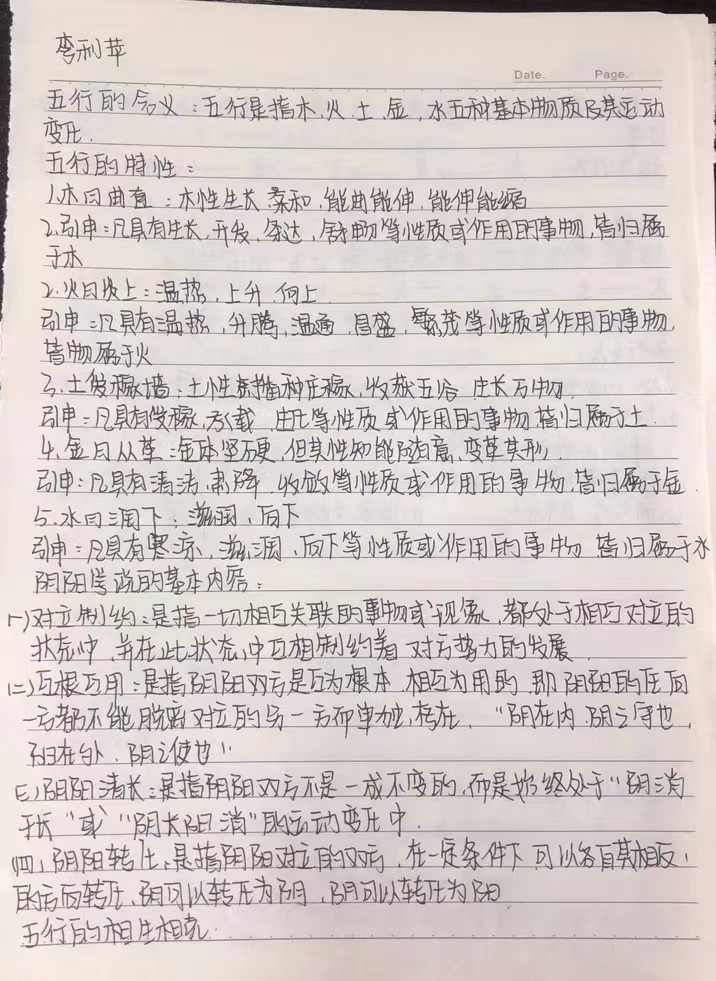 弯利苹
Date. Page.
五行的含义：五行是指木、火、土、金、水五种基本物质及其运动
变化.
五行的特性：
1.木曰曲直：木性生长、柔和、能曲能伸、能伸能缩
2.引申：凡具有生长、升发、条达、舒畅等性质或作用的事物，皆归属
于木
2.火曰炎上：温热、上升、向上
引申：凡具有温热、升腾、温通、昌盛、繁茂等性质或作用的事物，
皆物属于火
3.土爰稼墙：土性 播种庄稼、收获五谷 生长万物.
引申：凡具有 稼、承载、生化等性质或作用的事物皆归属于土.
4.金曰从革：金体坚硬，但其性知能随意、变革其形.
引申：凡具有清洁、肃降、收敛等性质或作用的事物，皆归属于金.
5.水曰润下：滋润、向下
引申：凡具有寒凉、滋润、向下等性质或作用的事物 皆归属于水
阴阳学说的基本内容：
(一)对立制约：是指一切相互关联的事物或现象，都处于相互对立的
状态中，并在此状态中互相制约着对方势力的发展
(二)互根互用：是指阴阳双方是互为根本、相互为用的，即阴阳的任何
一方都不能脱离对立的另一方而单独存在，“阴在内、阴之守也，
阳在外、阴之使也”
(三)阴阳消长：是指阴阳双方不是一成不变的，而是始终处于“阴消
长”或“阴长阳消”的运动变化中.
(四)阴阳转化：是指阴阳对立的双方，在一定条件下可以各自其相反
的方向转化，阴可以转化为阴，阴可以转化为阳
五行的相生相克.